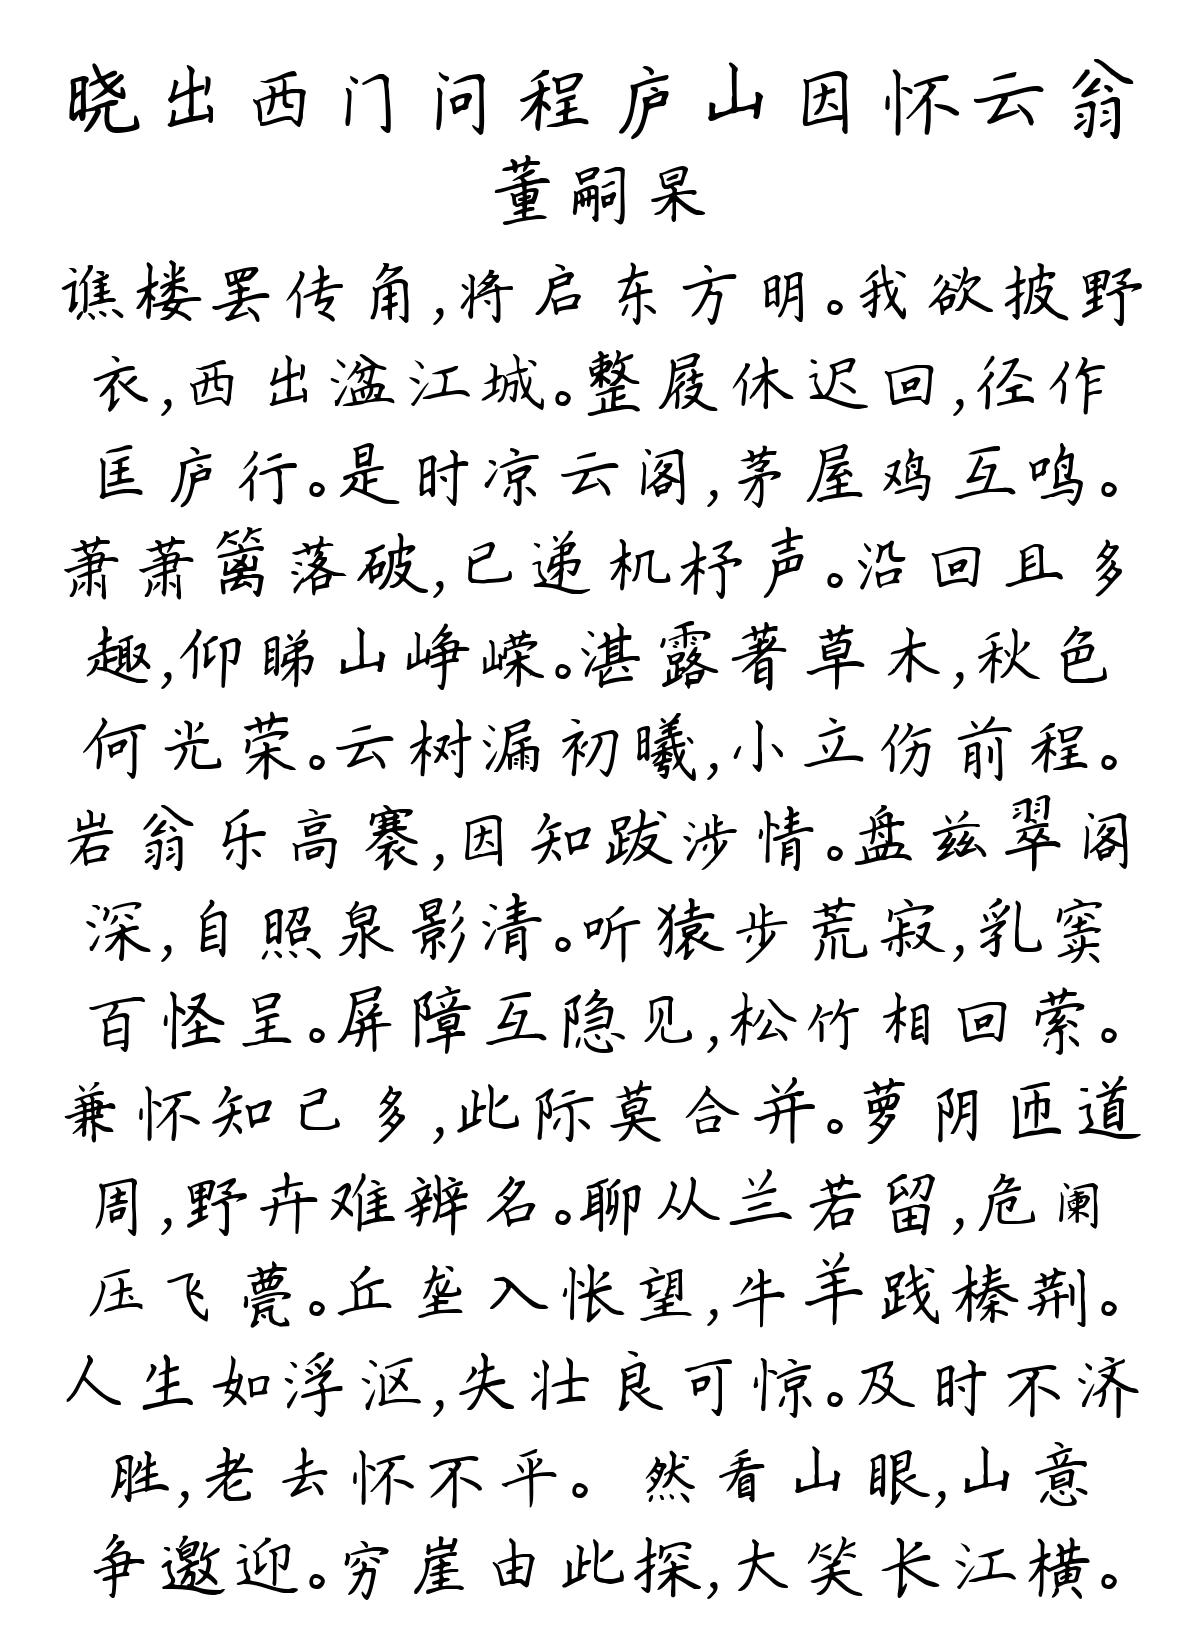 晓出西门问程庐山因怀云翁
董嗣杲
谯楼罢传角,将启东方明。我欲披野
衣,西出湓江城。整屐休迟回,径作
匡庐行。是时凉云阁,茅屋鸡互鸣。
萧萧篱落破,已递机杼声。沿回且多
趣,仰睇山峥嵘。湛露著草木,秋色
何光荣。云树漏初曦,小立伤前程。
岩翁乐高褰,因知跋涉情。盘兹翠阁
深,自照泉影清。听猿步荒寂,乳窦
百怪呈。屏障互隐见,松竹相回萦。
兼怀知己多,此际莫合并。萝阴匝道
周,野卉难辨名。聊从兰若留,危阑
压飞甍。丘垄入怅望,牛羊践榛荆。
人生如浮沤,失壮良可惊。及时不济
胜,老去怀不平。 然看山眼,山意
争邀迎。穷崖由此探,大笑长江横。